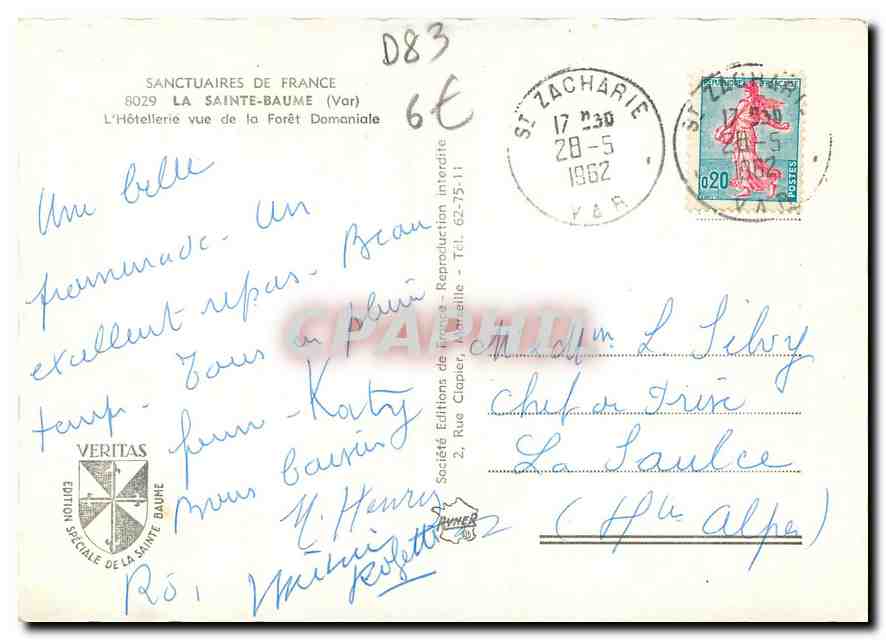 D83
6€
SANCTUAIRES DE FRANCE
8029 LA SAINTE-BAUME (Var)
L'Hôtellerie vue de la Forêt Domaniale
Une belle
promenade - un
excellent repas - Beau
temps - Tous en pleine
forme - Katy
Bons baisers
M. Henry
Rosette
VERITAS
EDITION SPÉCIALE DE LA SAINTE BAUME
Société Editions de France - Reproduction interdite
2, Rue Clapier, Marseille - Tél. 62-75-11
RYNER
CPAPHIL
ST ZACHARIE
17 H30
28-5
1962
VAR
REPUBLIQUE FRANÇAISE
0,20
POSTES
ST ZACHARIE
17 H30
28-5
1962
VAR
L. Silvy
Chef de
La Saulce
(Htes Alpes)